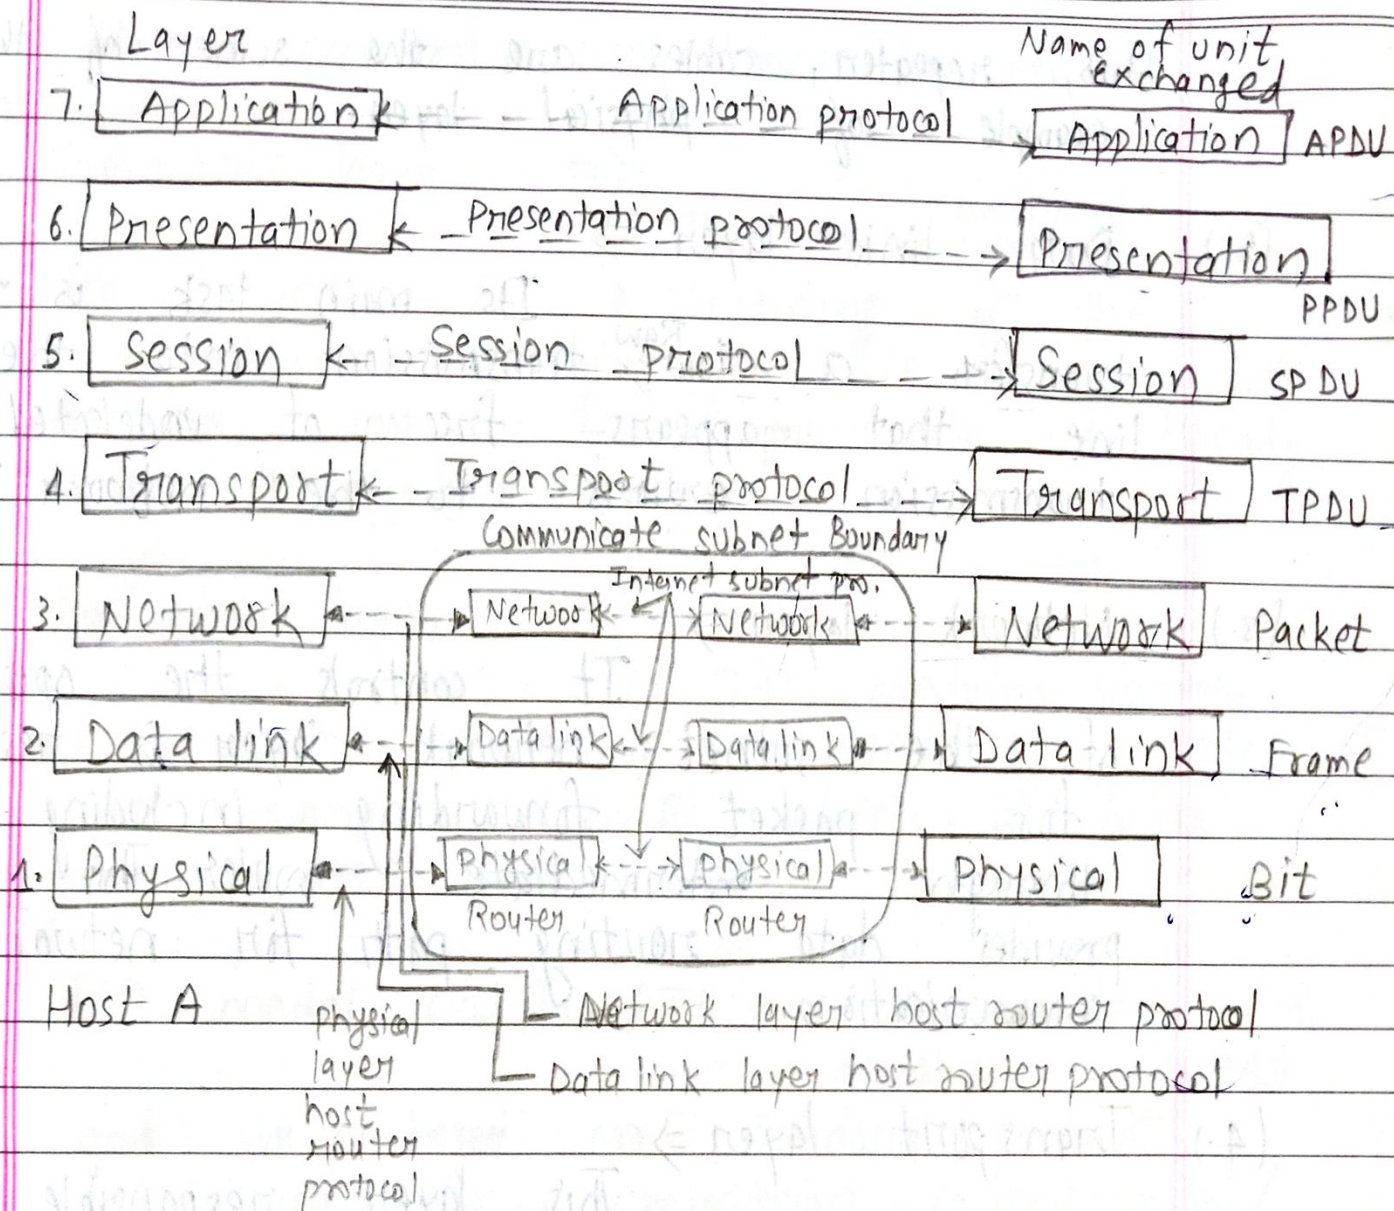 Layer
Name of unit
exchanged
7. Application Application protocol Application APDU
6. Presentation Presentation protocol Presentation
PPDU
5. Session Session protocol Session SPDU
4. Transport Transport protocol Transport TPDU
Communicate subnet Boundary
Internet subnet pro.
3. Network Network Network Network Packet
2. Data link Data link Data link Data link Frame
1. Physical Physical Physical Physical Bit
Router Router
Host A
Network layer host router protocol
Data link layer host router protocol
physical
layer
host
router
protocol